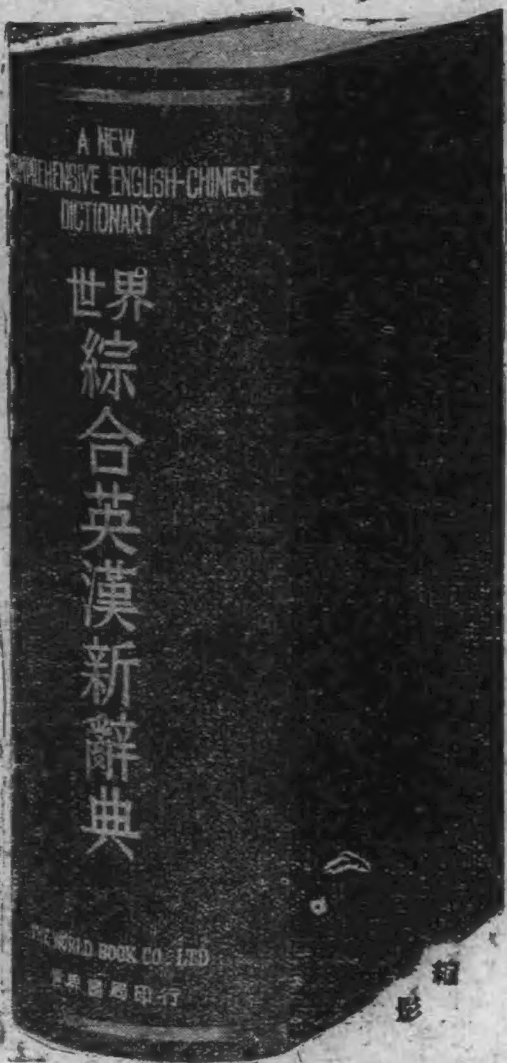 A NEW
COMPREHENSIVE ENGLISH-CHINESE
DICTIONARY
世界
綜合英漢新辭典
THE WORLD BOOK CO., LTD
世界書局印行
縮影